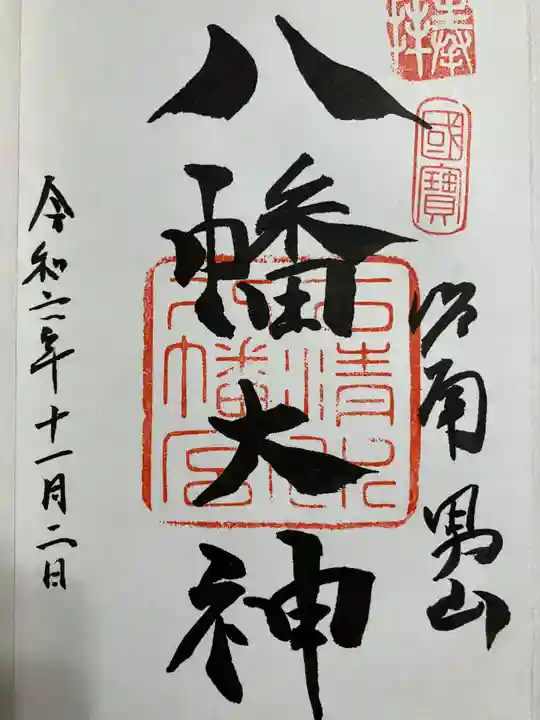 奉拝
國寶
洛南 男山
八幡大神
石清水
八幡宮
令和六年十一月二日